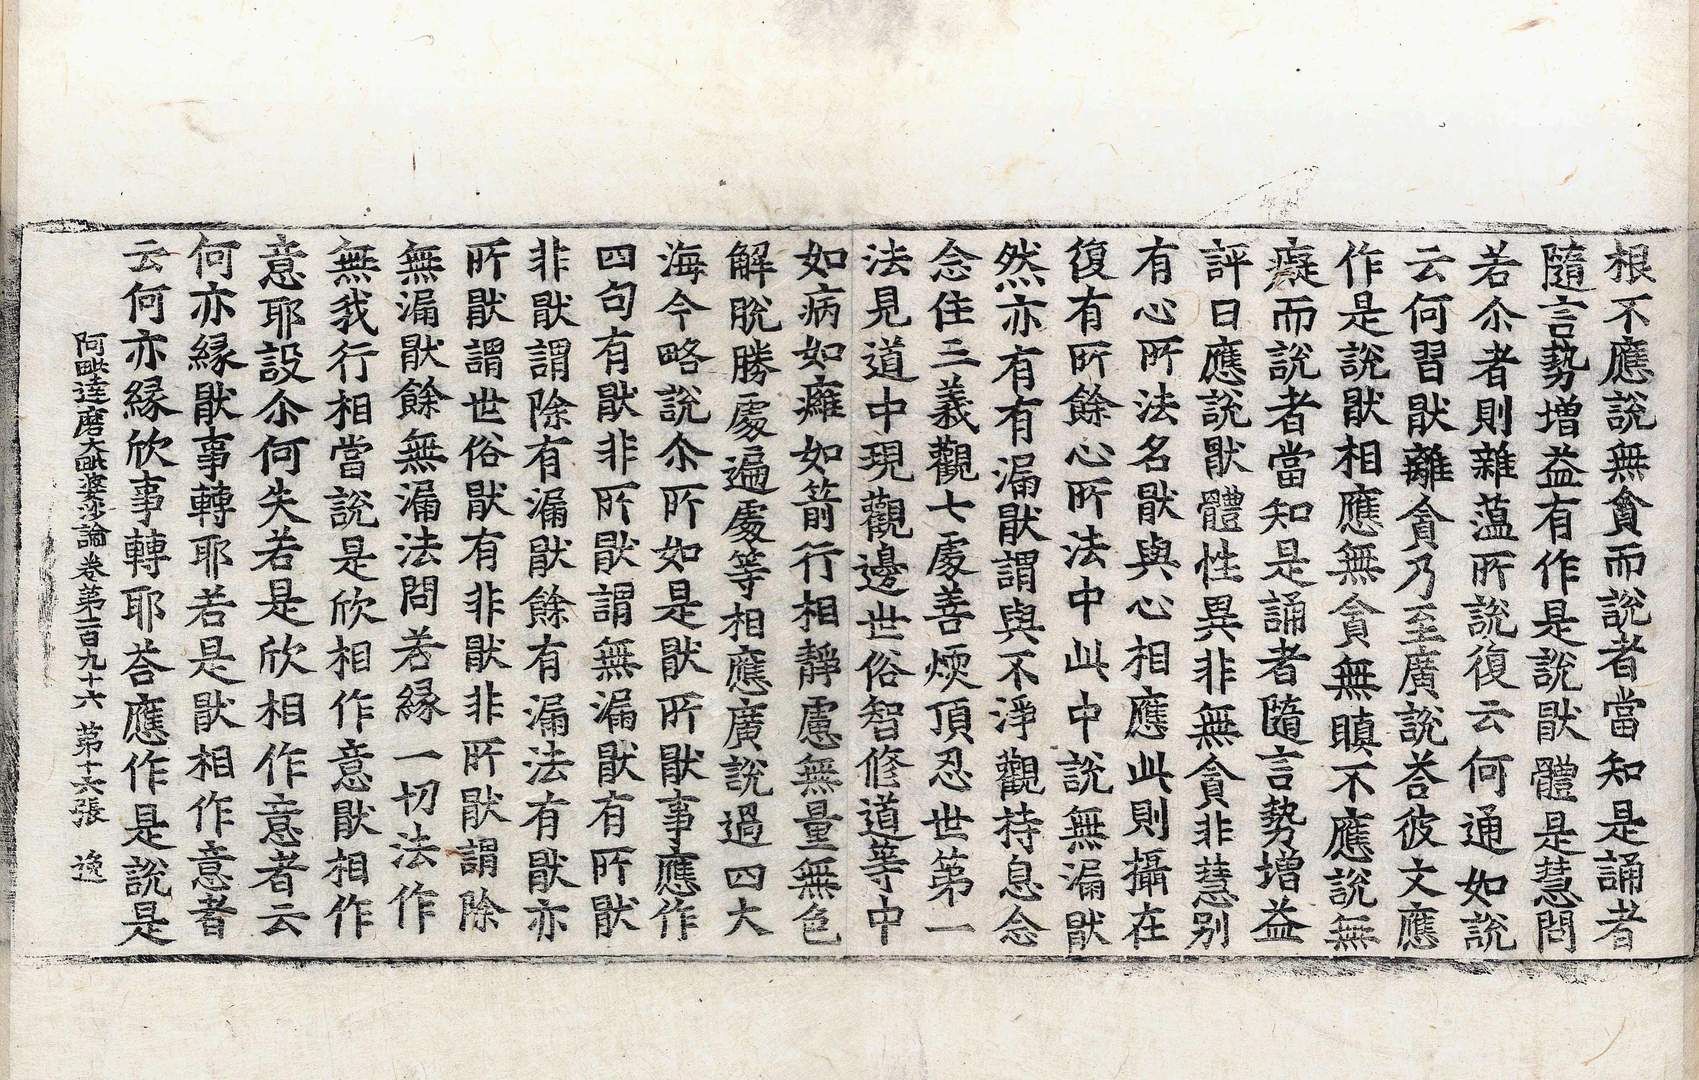 根不應說無貪而說者當知是誦者
隨言勢增益有作是說猒體是慧問
若尒者則雜薀所說復云何通如說
云何習猒離貪乃至廣說荅彼文應
作是說猒相應無貪無瞋不應說無
癡而說者當知是誦者隨言勢增益
評曰應說猒體性異非無貪非慧別
有心所法名猒與心相應此則攝在
復有所餘心所法中此中說無漏猒
然亦有有漏猒謂與不淨觀持息念
念住三義觀七處善煗頂忍世第一
法見道中現觀邊世俗智修道等中
如病如癰如箭行相靜慮無量無色
解脫勝處遍處等相應廣說過四大
海今略說尒所如是猒所猒事應作
四句有猒非所猒謂無漏猒有所猒
非猒謂除有漏猒餘有漏法有猒亦
所猒謂世俗猒有非猒非所猒謂除
無漏猒餘無漏法問若緣一切法作
無我行相當說是欣相作意猒相作
意耶設尒何失若是欣相作意者云
何亦緣猒事轉耶若是猒相作意者
云何亦緣欣事轉耶荅應作是說是
阿毗達磨大毗婆沙論卷第一百九十六 第十六張 逸